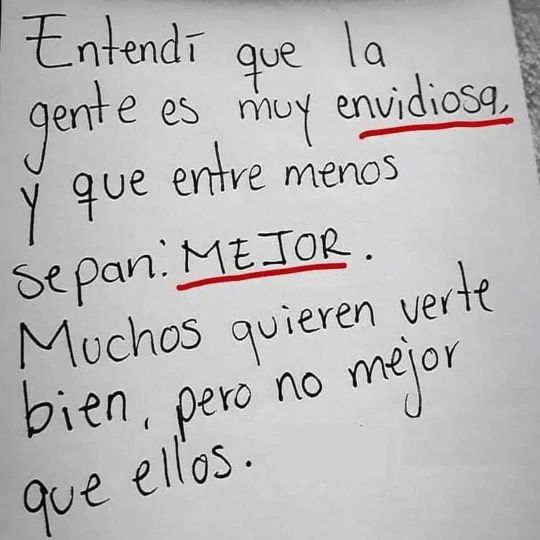 Entendí que la
gente es muy envidiosa,
y que entre menos
sepan: MEJOR.
Muchos quieren verte
bien, pero no mejor
que ellos.